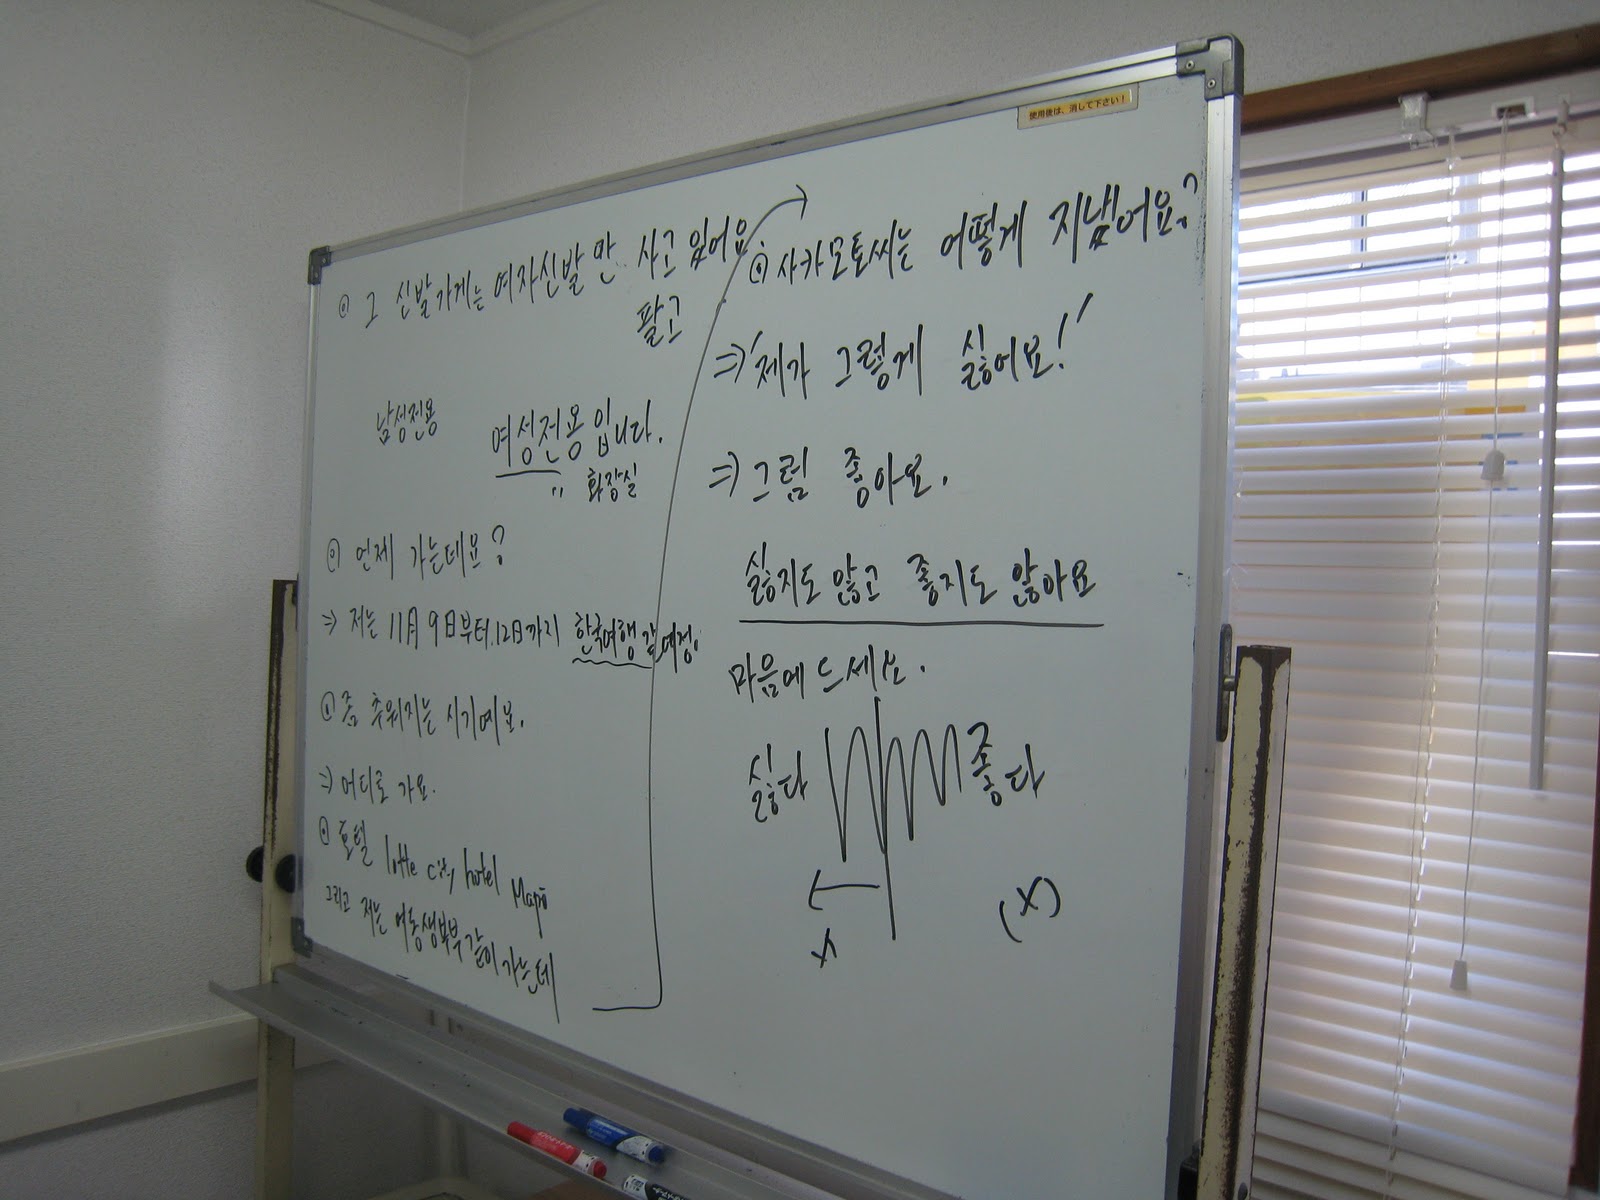 그 신발가게는 여자신발만 사고있어요.
팔고
남성전용
여성전용입니다.
" 화장실
언제 가는데요?
⇒ 저는 11月 9日부터.12日까지 한국여행 갈예정.
좀 추워지는 시기예요.
⇒ 어디로 가요.
호텔 lotte city hotel Mapo
그리고 저는 여동생부부 같이 가는데
使用後は、消して下さい!
사카모토씨는 어떻게 지냈어요?
⇒ '제가 그렇게 싫어요!'
⇒ 그럼 좋아요.
싫지도 않고 좋지도 않아요
마음에 드세요.
싫다 좋다
x (x)